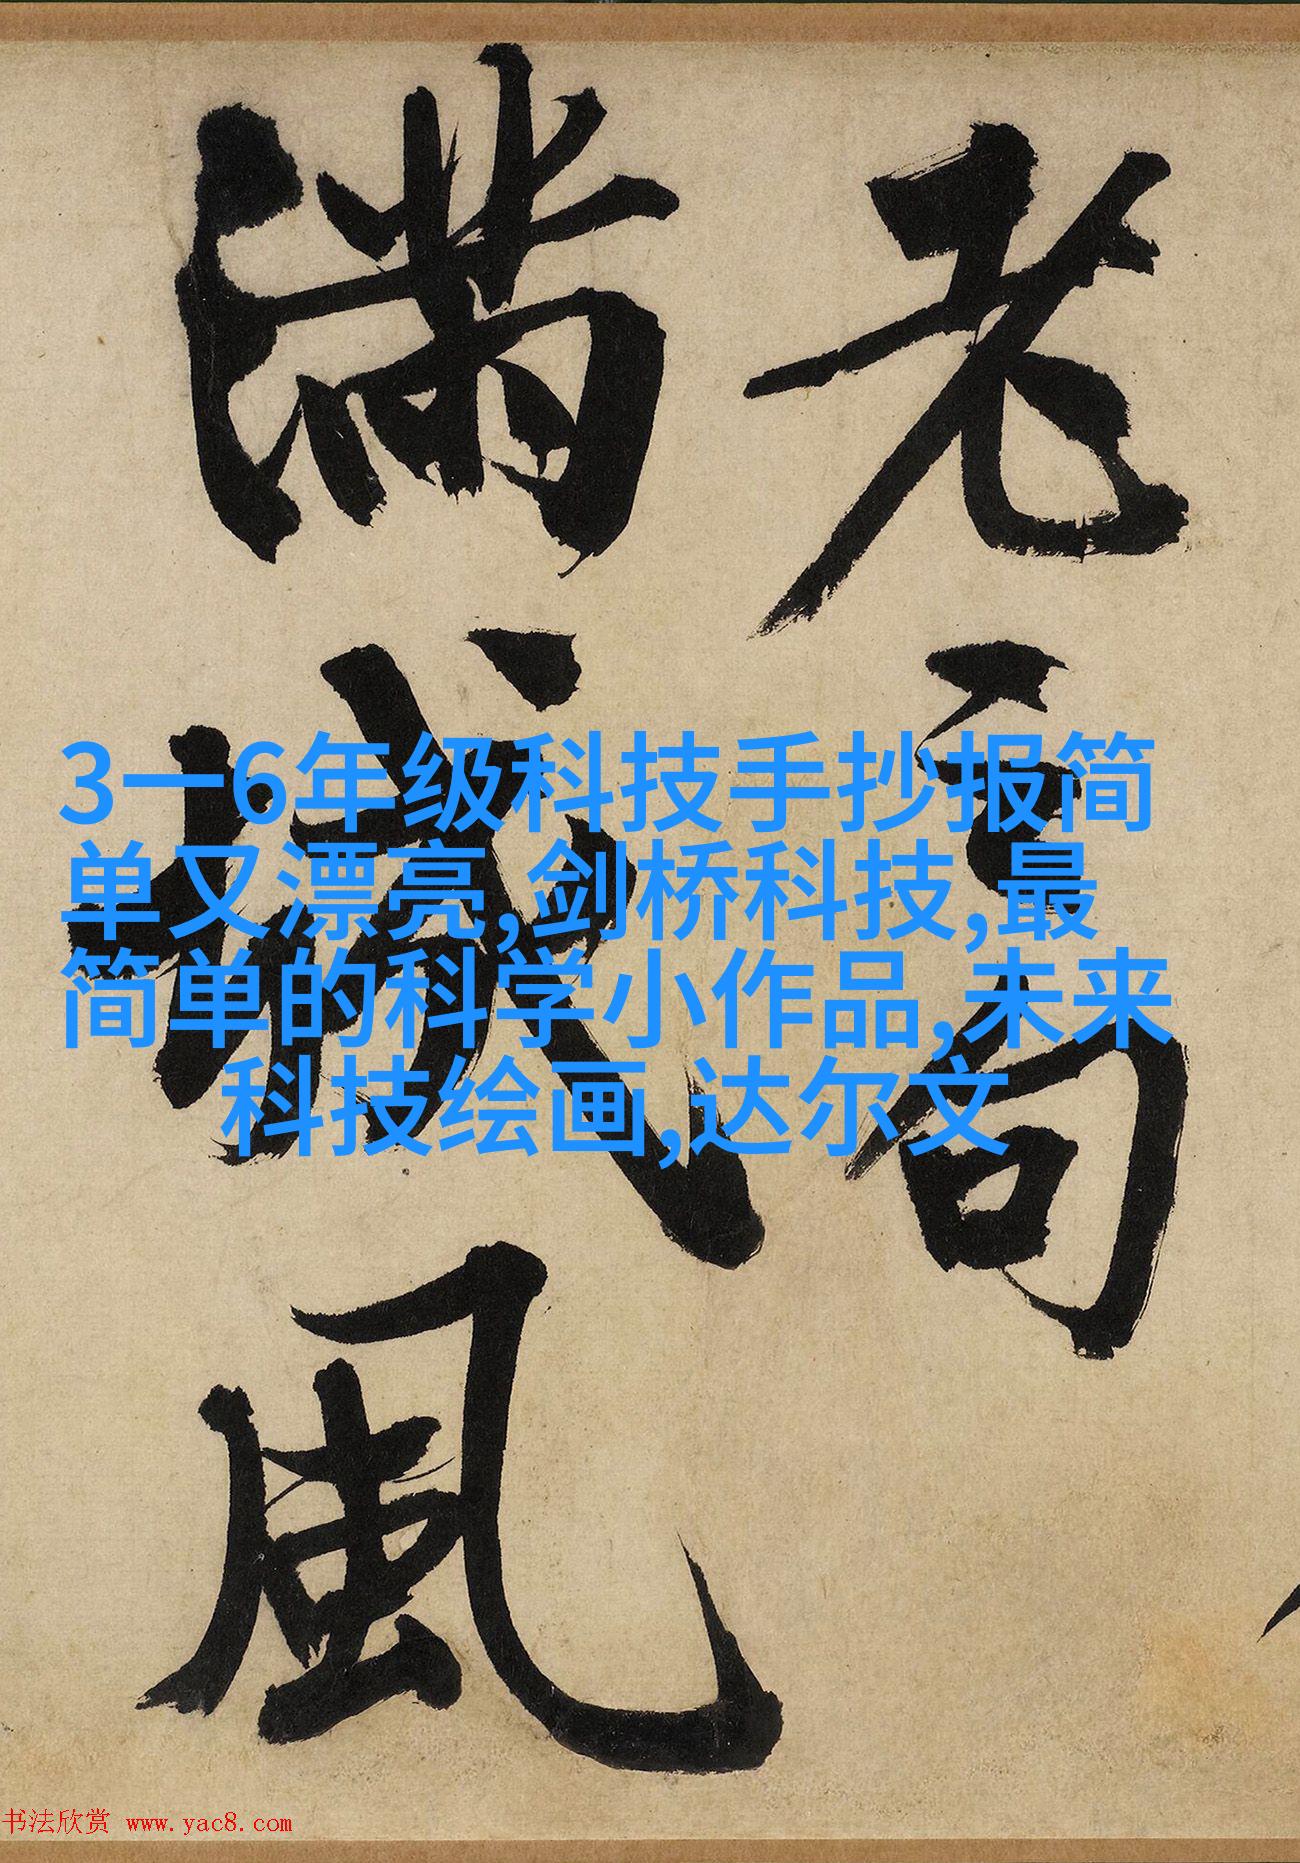 老句
滿城風
3一6年级科技手抄报简
单又漂亮,剑桥科技,最
简单的科学小作品,未来
科技绘画,达尔文
书法欣赏 www.yac8.com